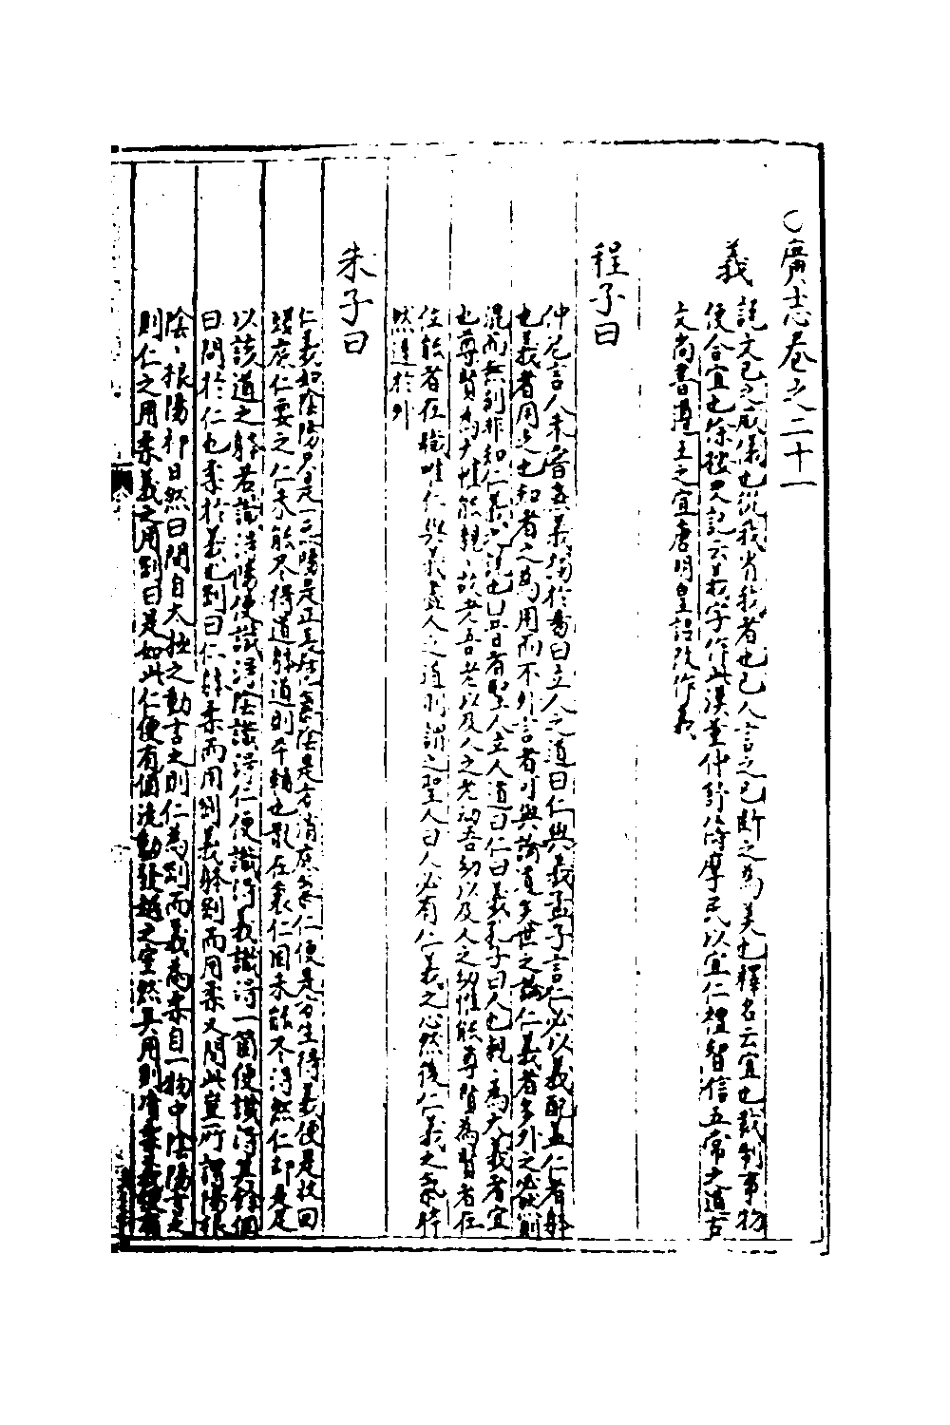 ○廣志卷之二十一
義 說文已之威儀也從我省我者也已人言之已斷之為美也釋名云宜也裁制事物
使合宜也徐鍇曰記云義字作此漢董仲舒
以宜仁禮智信五常之道古
文尚書遵王之宜唐明皇詔改作義
程子曰
仲尼言人未嘗兼義獨於易曰立人之道曰仁與義孟子言仁必以義配蓋仁者體
也義者用也知者之為用而不外言者可與論道矣世之論仁義者多外之不然則
混而無別非知仁義之說也昔者聖人立人道曰仁曰義孔子曰仁者人也親親為大義者宜
也尊賢為大惟能親親故老吾老以及人之老幼吾幼以及人之幼惟能尊賢為賢者在
位能者在職唯仁與義盡人之道則謂之聖人曰人必有仁義之心然後仁義之氣睟
然達於外
朱子曰
仁義如陰陽只是一氣陽是正長底氣陰是方消底氣仁便是方生得義便是收回
頭底仁要之仁未能盡得道體道則平鋪地散在裏仁固未能盡得然仁却是足
以該道之體若識得陽便識得陰識得仁便識得義識得一箇便識得其餘個
曰問於仁也柔於義也剛曰仁體柔而用剛義體剛而用柔又問此豈所謂陽根
陰陰根陽邪曰然曰問自太極之動言之則仁為剛而義為柔自一物中陰陽言之
則仁之用柔義之用剛曰是如此仁便有個流動發越之意然其用則慈柔義便有